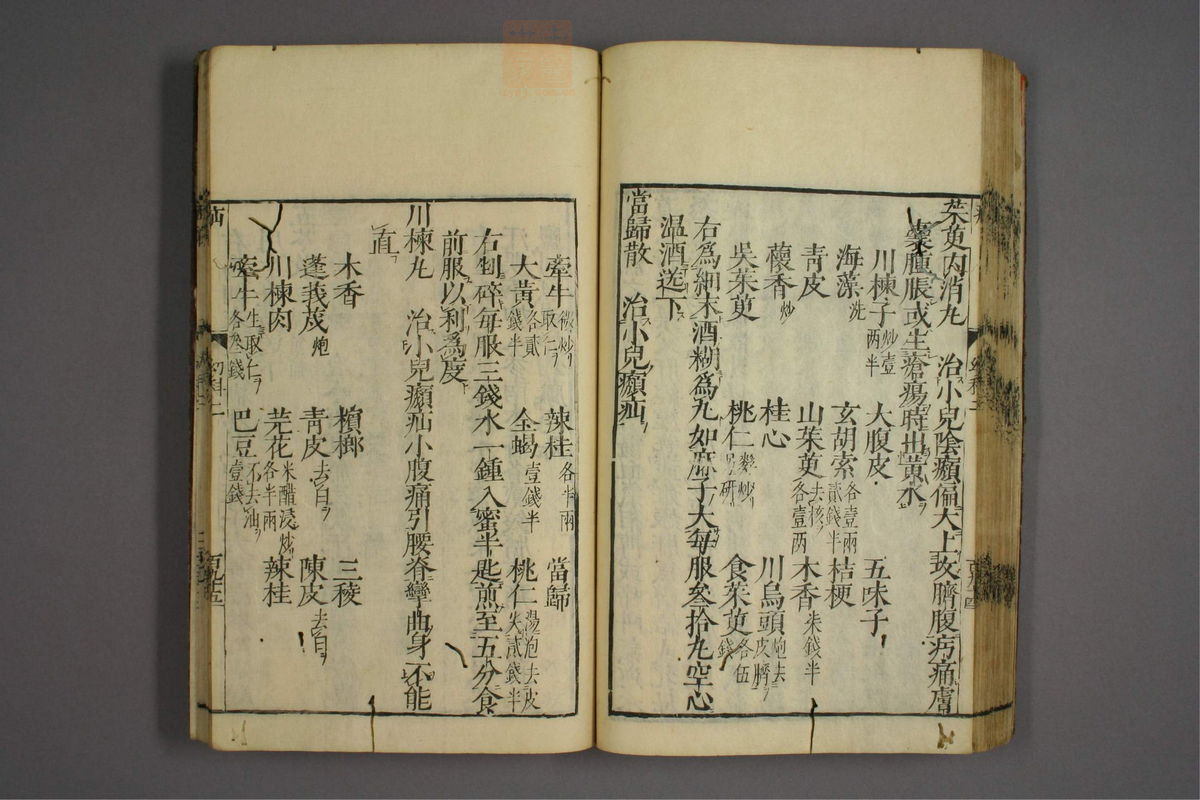 茱萸内消丸 治小兒陰㿗偏大上攻臍腹疠痛膚
囊腫脹或生瘡瘍時出黃水
川楝子炒壹两半 大腹皮 五味子
海藻洗 玄胡索各壹兩貳錢半 桔梗
青皮 山茱萸去核各壹两 木香柒錢半
蘹香炒 桂心 川烏頭炮去皮臍
吳茱萸 桃仁麩炒另研 食茱萸各伍錢
右爲細末酒糊爲丸如麻子大每服叁拾丸空心
温酒送下
當歸散 治小兒㿗疝
牽牛微炒取仁 辣桂各半兩 當歸
大黃各貳錢半 全蝎壹錢半 桃仁湯泡去皮尖貳錢半
右剉碎每服三錢水一鍾入蜜半匙煎至五分食
前服以利爲度
川楝丸 治小兒㿗疝小腹痛引腰脊攣曲身不能
直
木香 檳榔 三稜
蓬莪茂炮 青皮去白 陳皮去白
川楝肉 芫花米醋浸炒各半兩 辣桂
牽牛生取仁各二錢 巴豆不去油壹錢